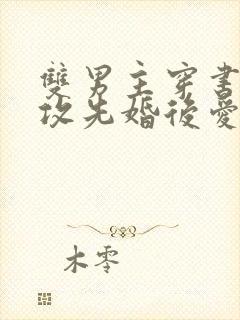 雙男主穿書
攻先婚後愛
木零